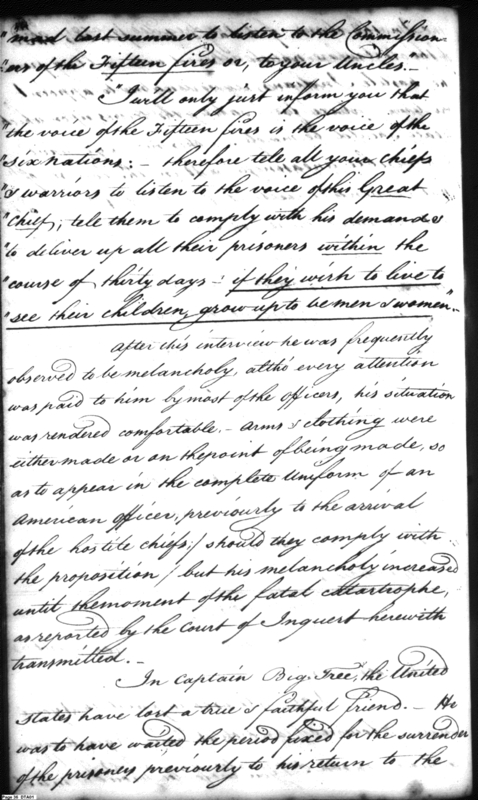 "mad last summer to listen to the Commission-
"ers of the Fifteen fires or, to your Uncles."—
"I will only just inform you that
"the voice of the Fifteen fires is the voice of the
"six nations: – therefore tele all your chiefs
"& warriors to listen to the voice of this Great
"Chief; tele them to comply with his demands
"to deliver up all their prisoners within the
"course of thirty days – if they wish to live to
"see their children, grow up to be men & women".–
After this interview he was frequently
observed to be melancholy, altho' every attention
was paid to him by most of the officers, his situation
was rendered comfortable. – arms & clothing were
either made or on the point of being made, so
as to appear in the complete Uniform of an
American officer, previously to the arrival
of the hostile chiefs; / should they comply with
the proposition / but his melancholy increased
until the moment of the fatal catastrophe,
as reported by the Court of Inquest herewith
transmitted. –
In Captain Big-Tree, the United
States have lost a true & faithful friend. – He
was to have waited the period fixed for the surrender
of the prisoners previously to his return to the
Page 36 D7A01